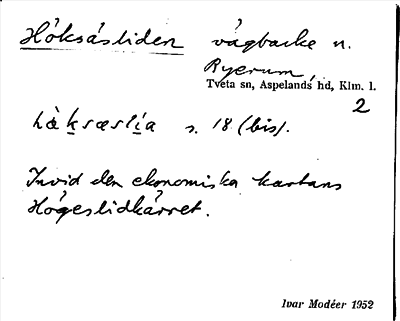 Höksåsliden vägbacke n.
Ryerum,
Tveta sn, Aspelands hd, Klm. l.
2
hὰksæslía s. 18 (bis).
Invid den ekonomiska kartans
Högeslidkärret.
Ivar Modéer 1952